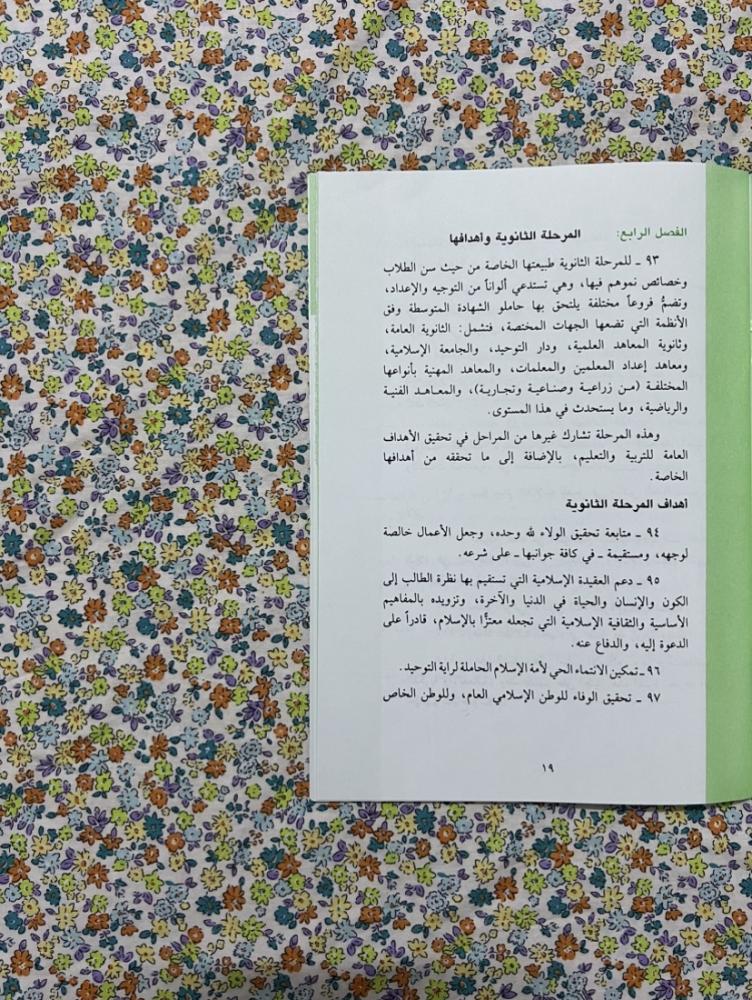 الفصل الرابع: المرحلة الثانوية وأهدافها
٩٣ ـ للمرحلة الثانوية طبيعتها الخاصة من حيث سن الطلاب
وخصائص نموهم فيها، وهي تستدعي ألواناً من التوجيه والإعداد،
وتضمُّ فروعاً مختلفة يلتحق بها حاملو الشهادة المتوسطة وفق
الأنظمة التي تضعها الجهات المختصة، فتشمل: الثانوية العامة،
وثانوية المعاهد العلمية، ودار التوحيد، والجامعة الإسلامية،
ومعاهد إعداد المعلمين والمعلمات، والمعاهد المهنية بأنواعها
المختلفة (من زراعية وصناعية وتجارية)، والمعاهد الفنية
والرياضية، وما يستحدث في هذا المستوى.
وهذه المرحلة تشارك غيرها من المراحل في تحقيق الأهداف
العامة للتربية والتعليم، بالإضافة إلى ما تحققه من أهدافها
الخاصة.
أهداف المرحلة الثانوية
٩٤ ـ متابعة تحقيق الولاء لله وحده، وجعل الأعمال خالصة
لوجهه، ومستقيمة ـ في كافة جوانبها ـ على شرعه.
٩٥ ـ دعم العقيدة الإسلامية التي تستقيم بها نظرة الطالب إلى
الكون والإنسان والحياة في الدنيا والآخرة، وتزويده بالمفاهيم
الأساسية والثقافية الإسلامية التي تجعله معتزًّا بالإسلام، قادراً على
الدعوة إليه، والدفاع عنه.
٩٦ ـ تمكين الانتماء الحي لأمة الإسلام الحاملة لراية التوحيد.
٩٧ ـ تحقيق الوفاء للوطن الإسلامي العام، وللوطن الخاص
١٩